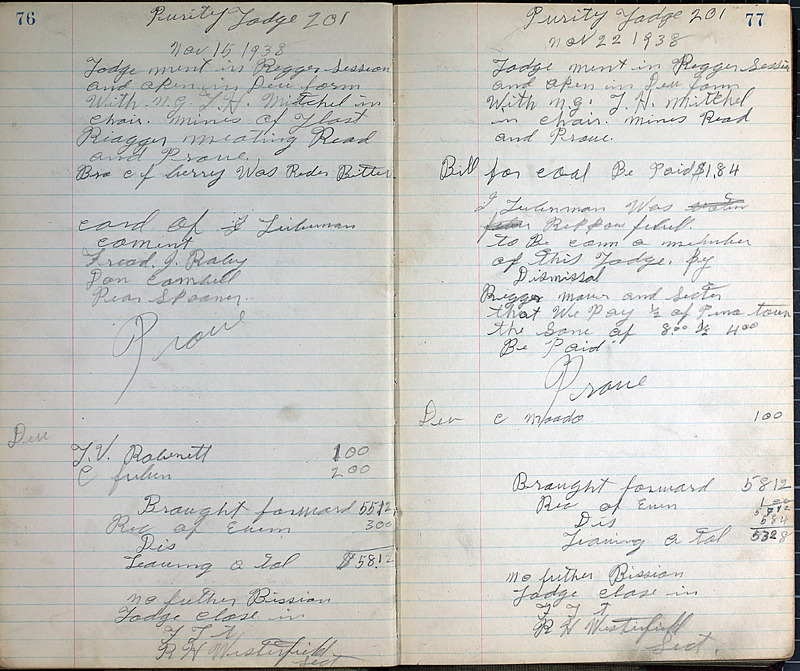 76
Purity Lodge 201
Nov 15 1938
Lodge ment in Regger Session
and open in Deu form
With N.G. J.H. Mitchel in
chair. Mines of Last
Reagger meating Read
and Prove.
Bro cf Curry Was Reder Better
card of J Lieberman
coment
Fread. J. Raby
Don Cambell
Pear Spooner
Prove
Deu
J.V. Robenett 1 00
C 2 00
Brought forward 5512
Rec of Evem 300
Dis
Leaving a Tol $5812
no futher Bission
Lodge close in
F L T
R H Westerfield
Sect
77
Purity Lodge 201
Nov 22 1938
Lodge ment in Regger Session
and open in Deu form
With N.G. J.H. Mitchel
in chair. mines Read
and Prove.
Bill for coal Be Paid $1,84
J Was
to Be com a member
of this Lodge. By
Dismissal
Regger mover and Secter
that We Pay ½ of town
the Sone of 8.00 ½ 4 00
Be Paid
Prove
Deu C Moodo 1 00
Brought forward 5812
Rec of Evem 1 00
5912
Dis 584
Leaving a Tol 5328
no futher Bission
Lodge close in
F L T
R H Westerfield
Sect.